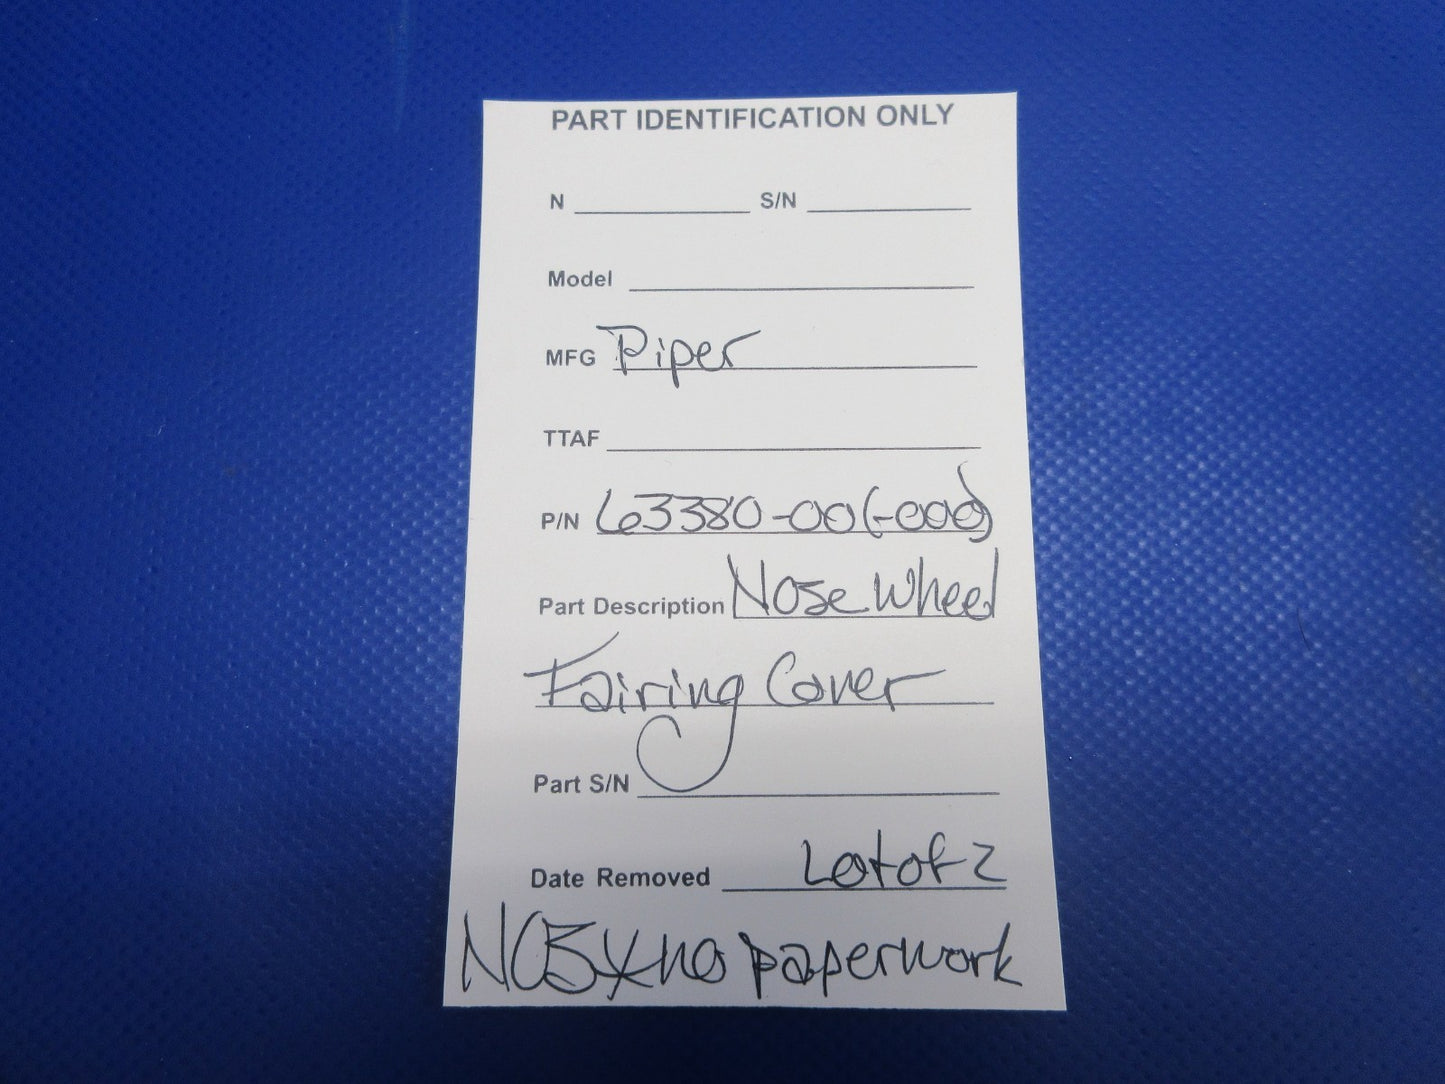 PART IDENTIFICATION ONLY
N S/N
Model
MFG Piper
TTAF
P/N 63380-00(-000)
Part Description Nose Wheel
Fairing Cover
Part S/N
Date Removed Lot of 2
NOS * no paperwork